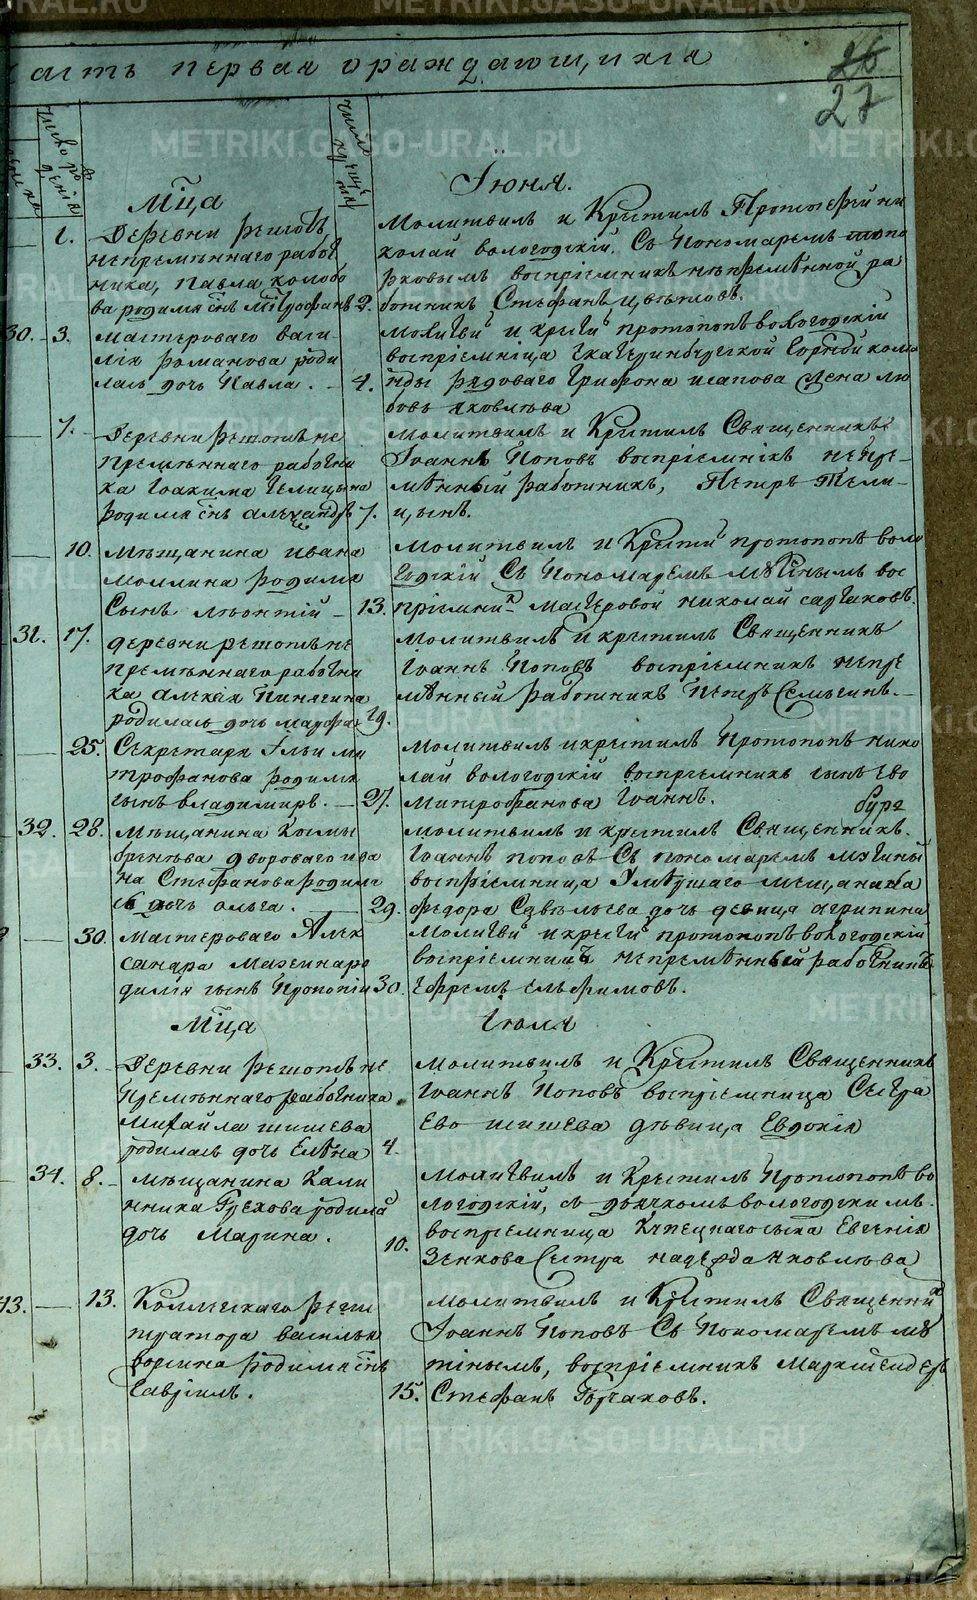 асть первая о раждающихся
26
27
число рождения
число крещения
Мца Іюня.
1. Деревни Решотъ
непременнаго работ
ника, Павла колобо
ва родился снъ Митрофанъ 2.
Молитвилъ и Крестилъ Протоіерей ни
колай вологодскій. Съ Пономаремъ
воспріемникъ непременной ра
ботникъ Стефанъ
30. 3. мастероваго васи
лія романова роди
лась дочь Павла. 4.
молитви и крести протопопъ вологодскій
воспріемница екатеринбургской горной кома
нды рядоваго Трифона жена лю
бовь яковлева
7. Деревни решотъ не
премѣннаго работни
ка Іоакима Телицына
родился снъ александръ 7.
молитвилъ и Крестилъ Священникъ
Іоаннъ Поповъ воспріемникъ непре-
мѣнный работникъ, Петръ Тели-
цынъ.
10. мѣщанина ивана
родился
Сынъ леонтій 13.
молитвилъ и Крести протопопъ воло
годскій Съ Пономаремъ вос
пріемни мастеровой николай
31. 17. деревни решотъ не
премѣннаго работни
ка алексія Пинягина
родилась дочь марфа 19.
молитвилъ и крестилъ Священникъ
Іоаннъ Поповъ воспріемникъ непре
мѣнный работникъ Петръ
25. Секретаря Ильи ми
трофанова родился
сынъ владимиръ. 27.
молитвилъ и крестилъ Протопопъ нико
лай вологодскій воспріемникъ сынъ ево
митрофанова Іоаннъ.
32. 28. мѣщанина козмы
двороваго ива
на Стефанова родила
сь дочь ольга. 29.
бург
молитвилъ и крестилъ Священникъ
Іоаннъ поповъ Съ пономаремъ
воспріемница Умершаго мещанина
федора Савельева дочь девица агрипина
30. мастероваго Алек
сандра
дился сынъ Прокопій 30.
молитви и крести протопопъ вологодскій
воспріемникъ непремѣнный работникъ
Ефремъ
Мца Іюля
33. 3. Деревни Решотъ не
премѣннаго работника
михайла шишева
родилась дочь Елѣна 4.
молитвилъ и Крестилъ Священникъ
Іоаннъ Поповъ воспріемница Сестра
Ево шишева дѣвица Евдокія
34. 8. мѣщанина Кали
нника Грехова родила
дочь Марина. 10.
молитвилъ и Крестилъ Протопопъ во
логодскій, съ дьячкомъ вологодскимъ
воспріемница Купецкаго сына Евгенія
Зенкова Сестра надежда яковлева
43. 13. Коллежскаго реги
стратора василья
родился снъ
Гавріилъ. 15.
молитвилъ и Крестилъ Священник
Іоаннъ Поповъ Съ Пономаремъ
воспріемникъ
Стефанъ Горчаковъ.
METRIKI.GASO-URAL.RU